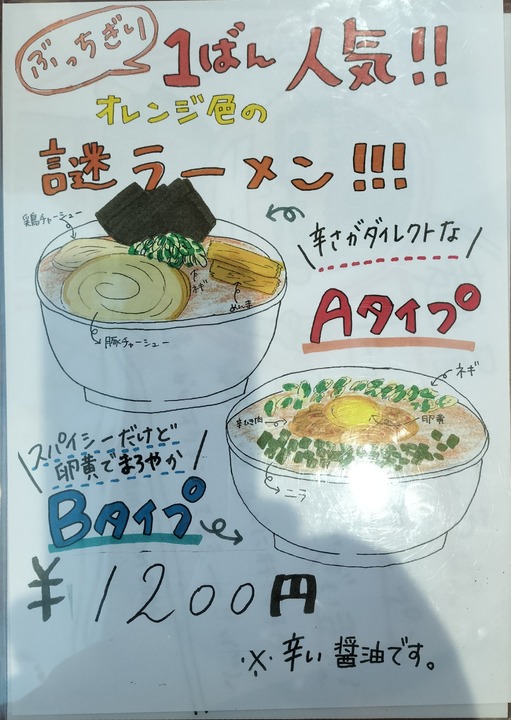 ぶっちぎり
1ばん人気!!
オレンジ色の
謎ラーメン!!!
鶏チャーシュー
ネギ
めんま
豚チャーシュー
辛さがダイレクトな
Aタイプ
ネギ
辛ひき肉
卵黄
ニラ
スパイシーだけど
卵黄でまろやか
Bタイプ
¥1200円
※辛い醤油です。